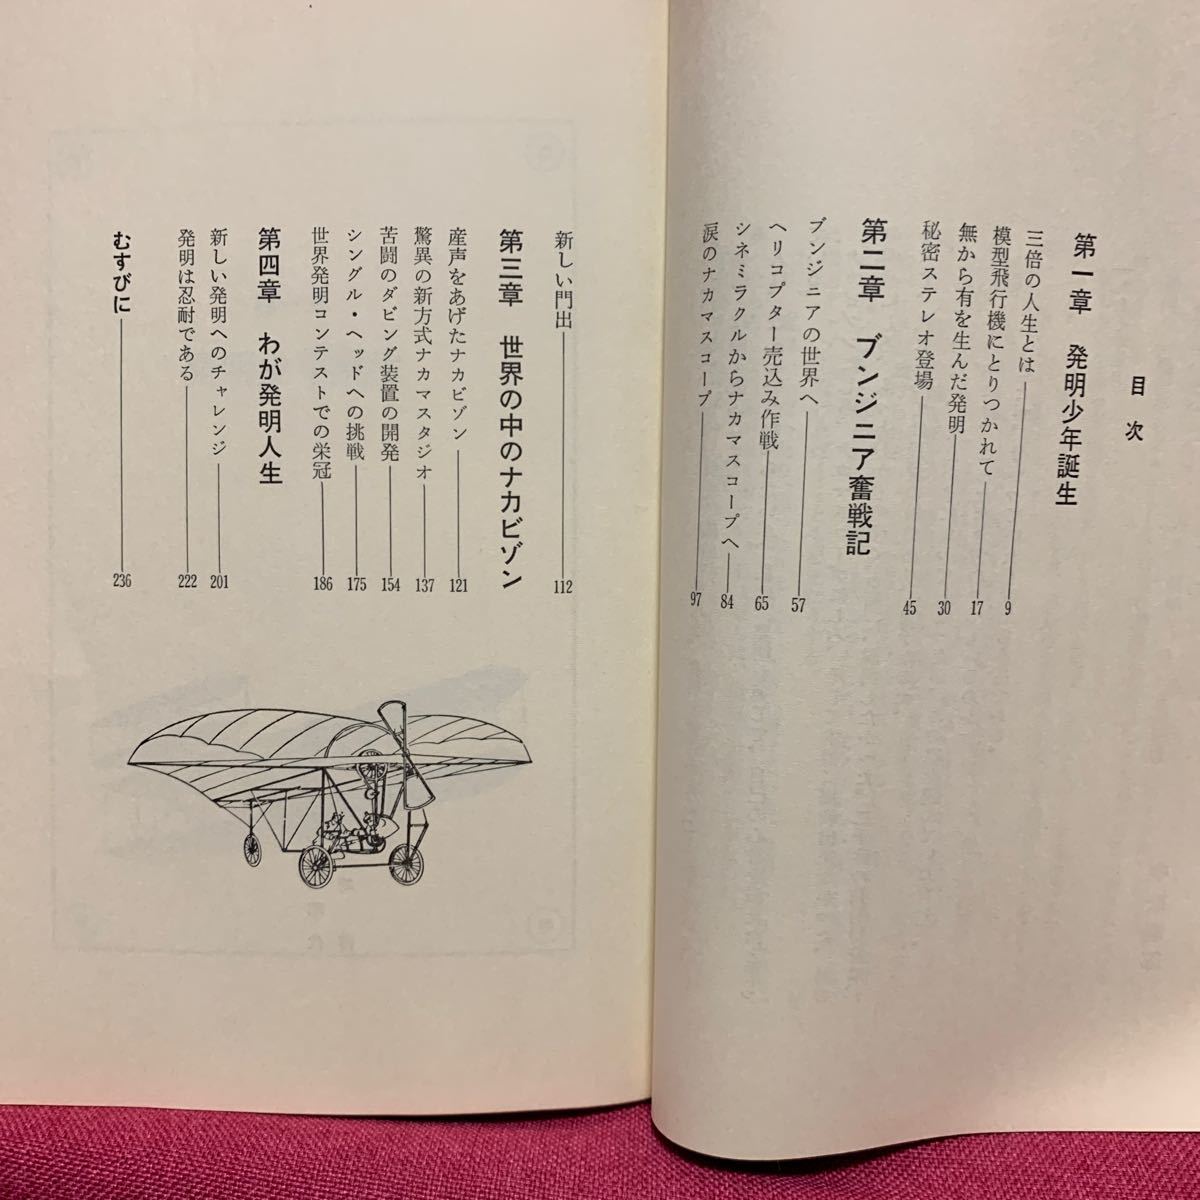 目次
第一章 発明少年誕生
三倍の人生とは 9
模型飛行機にとりつかれて 17
無から有を生んだ発明 30
秘密ステレオ登場 45
第二章 ブンジニア奮戦記
ブンジニアの世界へ 57
ヘリコプター売込み作戦 65
シネミラクルからナカマスコープへ 84
涙のナカマスコープ 97
新しい門出 112
第三章 世界の中のナカビゾン
産声をあげたナカビゾン 121
驚異の新方式ナカマスタジオ 137
苦闘のダビング装置の開発 154
シングル・ヘッドへの挑戦 175
世界発明コンテストでの栄冠 186
第四章 わが発明人生
新しい発明へのチャレンジ 201
発明は忍耐である 222
むすびに 236